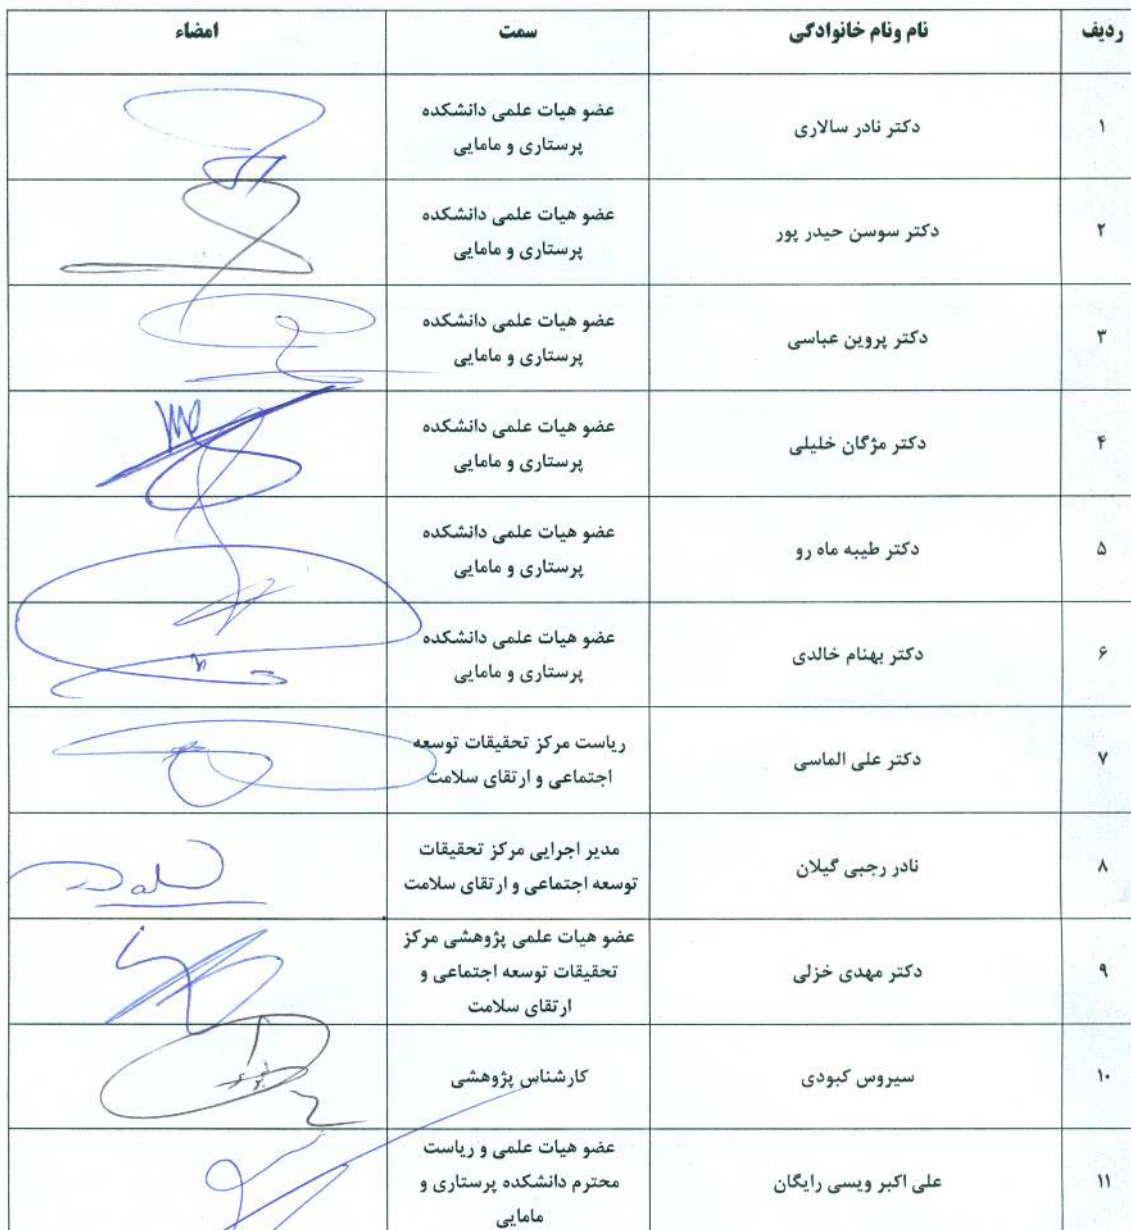 ردیف نام ونام خانوادگی سمت امضاء
۱ دکتر نادر سالاری عضو هیات علمی دانشکده
پرستاری و مامایی
۲ دکتر سوسن حیدر پور عضو هیات علمی دانشکده
پرستاری و مامایی
۳ دکتر پروین عباسی عضو هیات علمی دانشکده
پرستاری و مامایی
۴ دکتر مژگان خلیلی عضو هیات علمی دانشکده
پرستاری و مامایی
۵ دکتر طیبه ماه رو عضو هیات علمی دانشکده
پرستاری و مامایی
۶ دکتر بهنام خالدی عضو هیات علمی دانشکده
پرستاری و مامایی
۷ دکتر علی الماسی ریاست مرکز تحقیقات توسعه
اجتماعی و ارتقای سلامت
۸ نادر رجبی گیلان مدیر اجرایی مرکز تحقیقات
توسعه اجتماعی و ارتقای سلامت
۹ دکتر مهدی خزلی عضو هیات علمی پژوهشی مرکز
تحقیقات توسعه اجتماعی و
ارتقای سلامت
۱۰ سیروس کبودی کارشناس پژوهشی
۱۱ علی اکبر ویسی رایگان عضو هیات علمی و ریاست
محترم دانشکده پرستاری و
مامایی